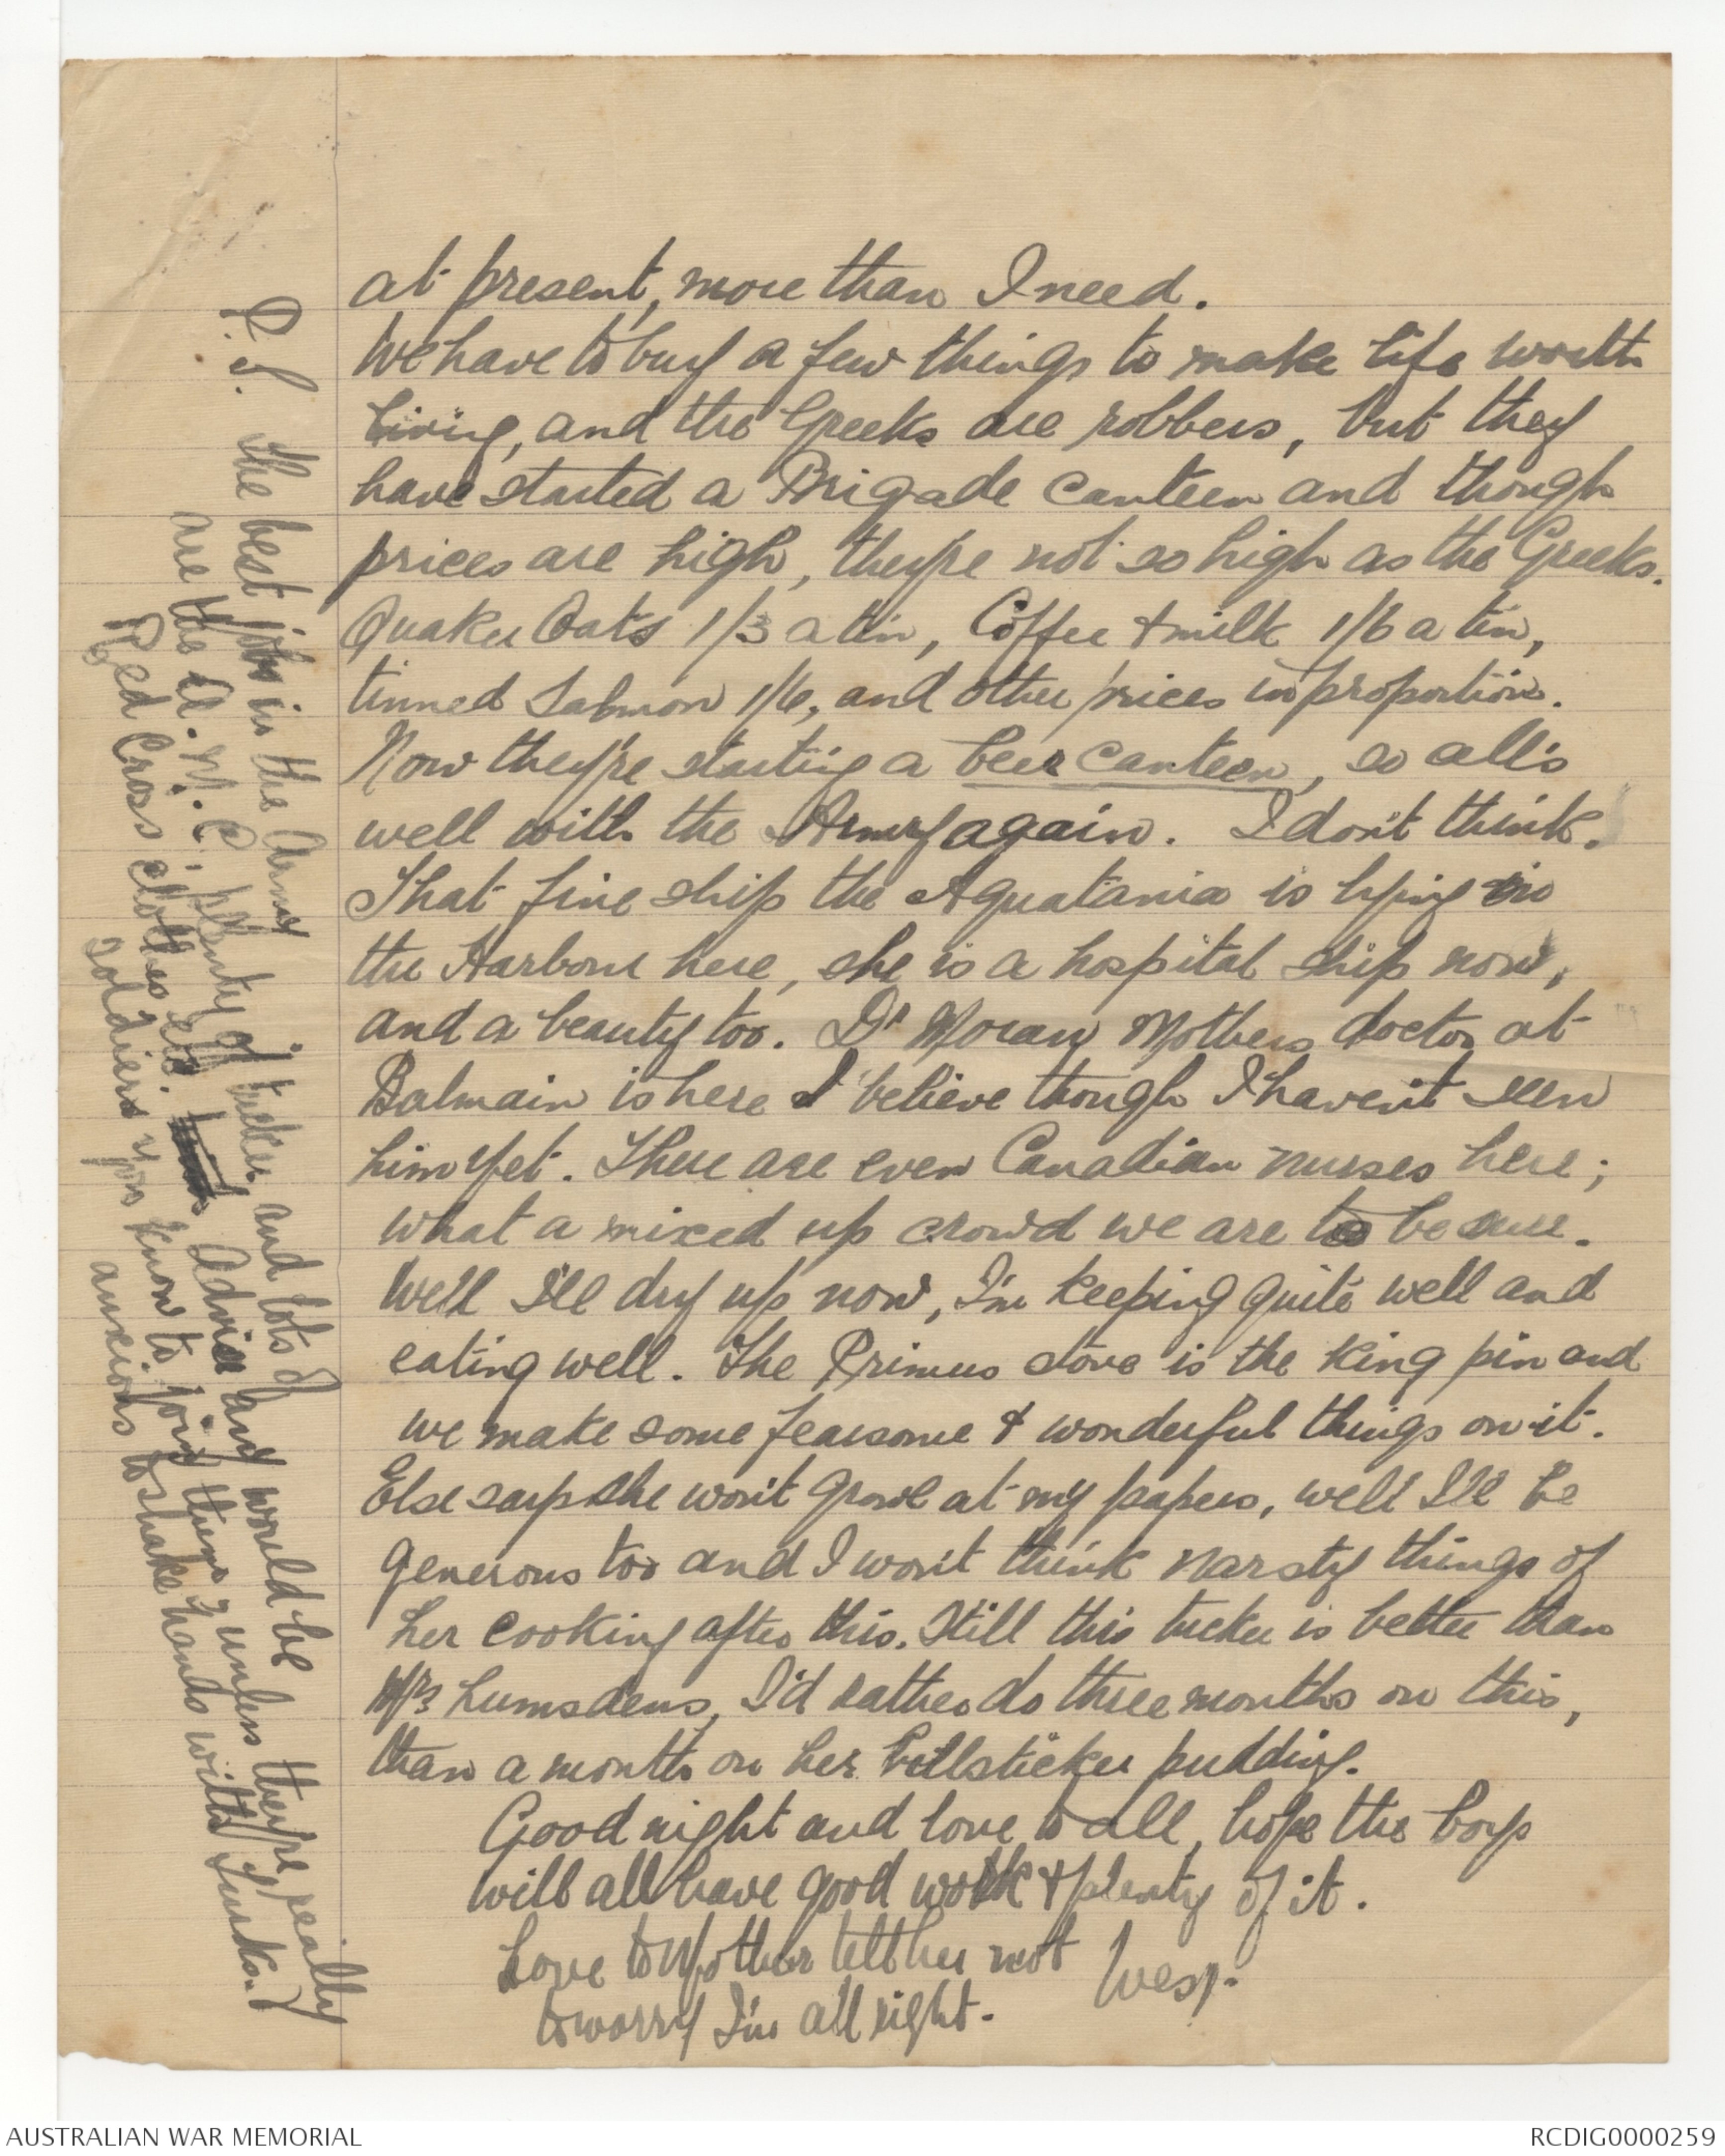 at present, more than I need.
We have to buy a few things to make life worth
living, and the Greeks are robbers, but they
have started a Brigade Canteen and though
prices are high, they're not so high as the Greeks.
Quaker Oats 1/3 a tin, Coffee & milk 1/6 a tin,
tinned Salmon 1/6, and other prices in proportion.
Now they're starting a beer canteen, so all's
well with the Army again. I don't think.
That fine ship the Aquatania is lying in
the Harbour here, she is a hospital ship now,
and a beauty too. Dr Moran Mothers doctor at
Balmain is here I believe though I haven't seen
him yet. There are even Canadian nurses here;
what a mixed up crowd we are to be sure.
Well I'll dry up now, I'm keeping quite well and
eating well. The Primus stove is the king pin and
we make some fearsome & wonderful things on it.
Else says she won't growl at my papers, well I'll be
generous too and I won't think narsty things of
her cooking after this. Still this tucker is better than
Mrs Lumsdens, I'd rather do three months on this,
than a month on her billsticker pudding.
Good night and love to all, hope the boys
will all have good work & plenty of it.
Love to Mother tell her not
to worry I'm all right.
Wes.
P.S. The best jobs in the Army
are the A.M.C, plenty of tucker and lots of
Red Cross clothes etc. Advise any would be
soldiers you know to join them, unless they're really
anxious to shake hands with Turks.
AUSTRALIAN WAR MEMORIAL
RCDIG0000259